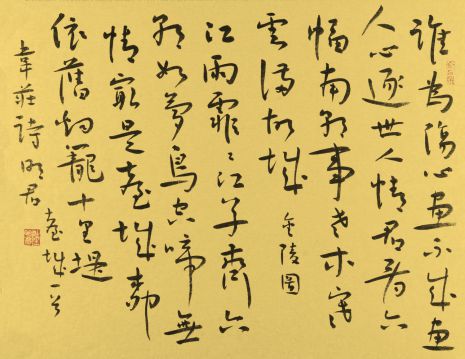 誰為傷心畫不成畫
人心逐世人情君看六
幅南朝事老木寒
雲滿故城 金陵圖
江雨霏〻江草齊六
朝如夢鳥空啼無
情最是臺城柳
依舊烟籠十里堤
臺城一首
韋莊詩 明君